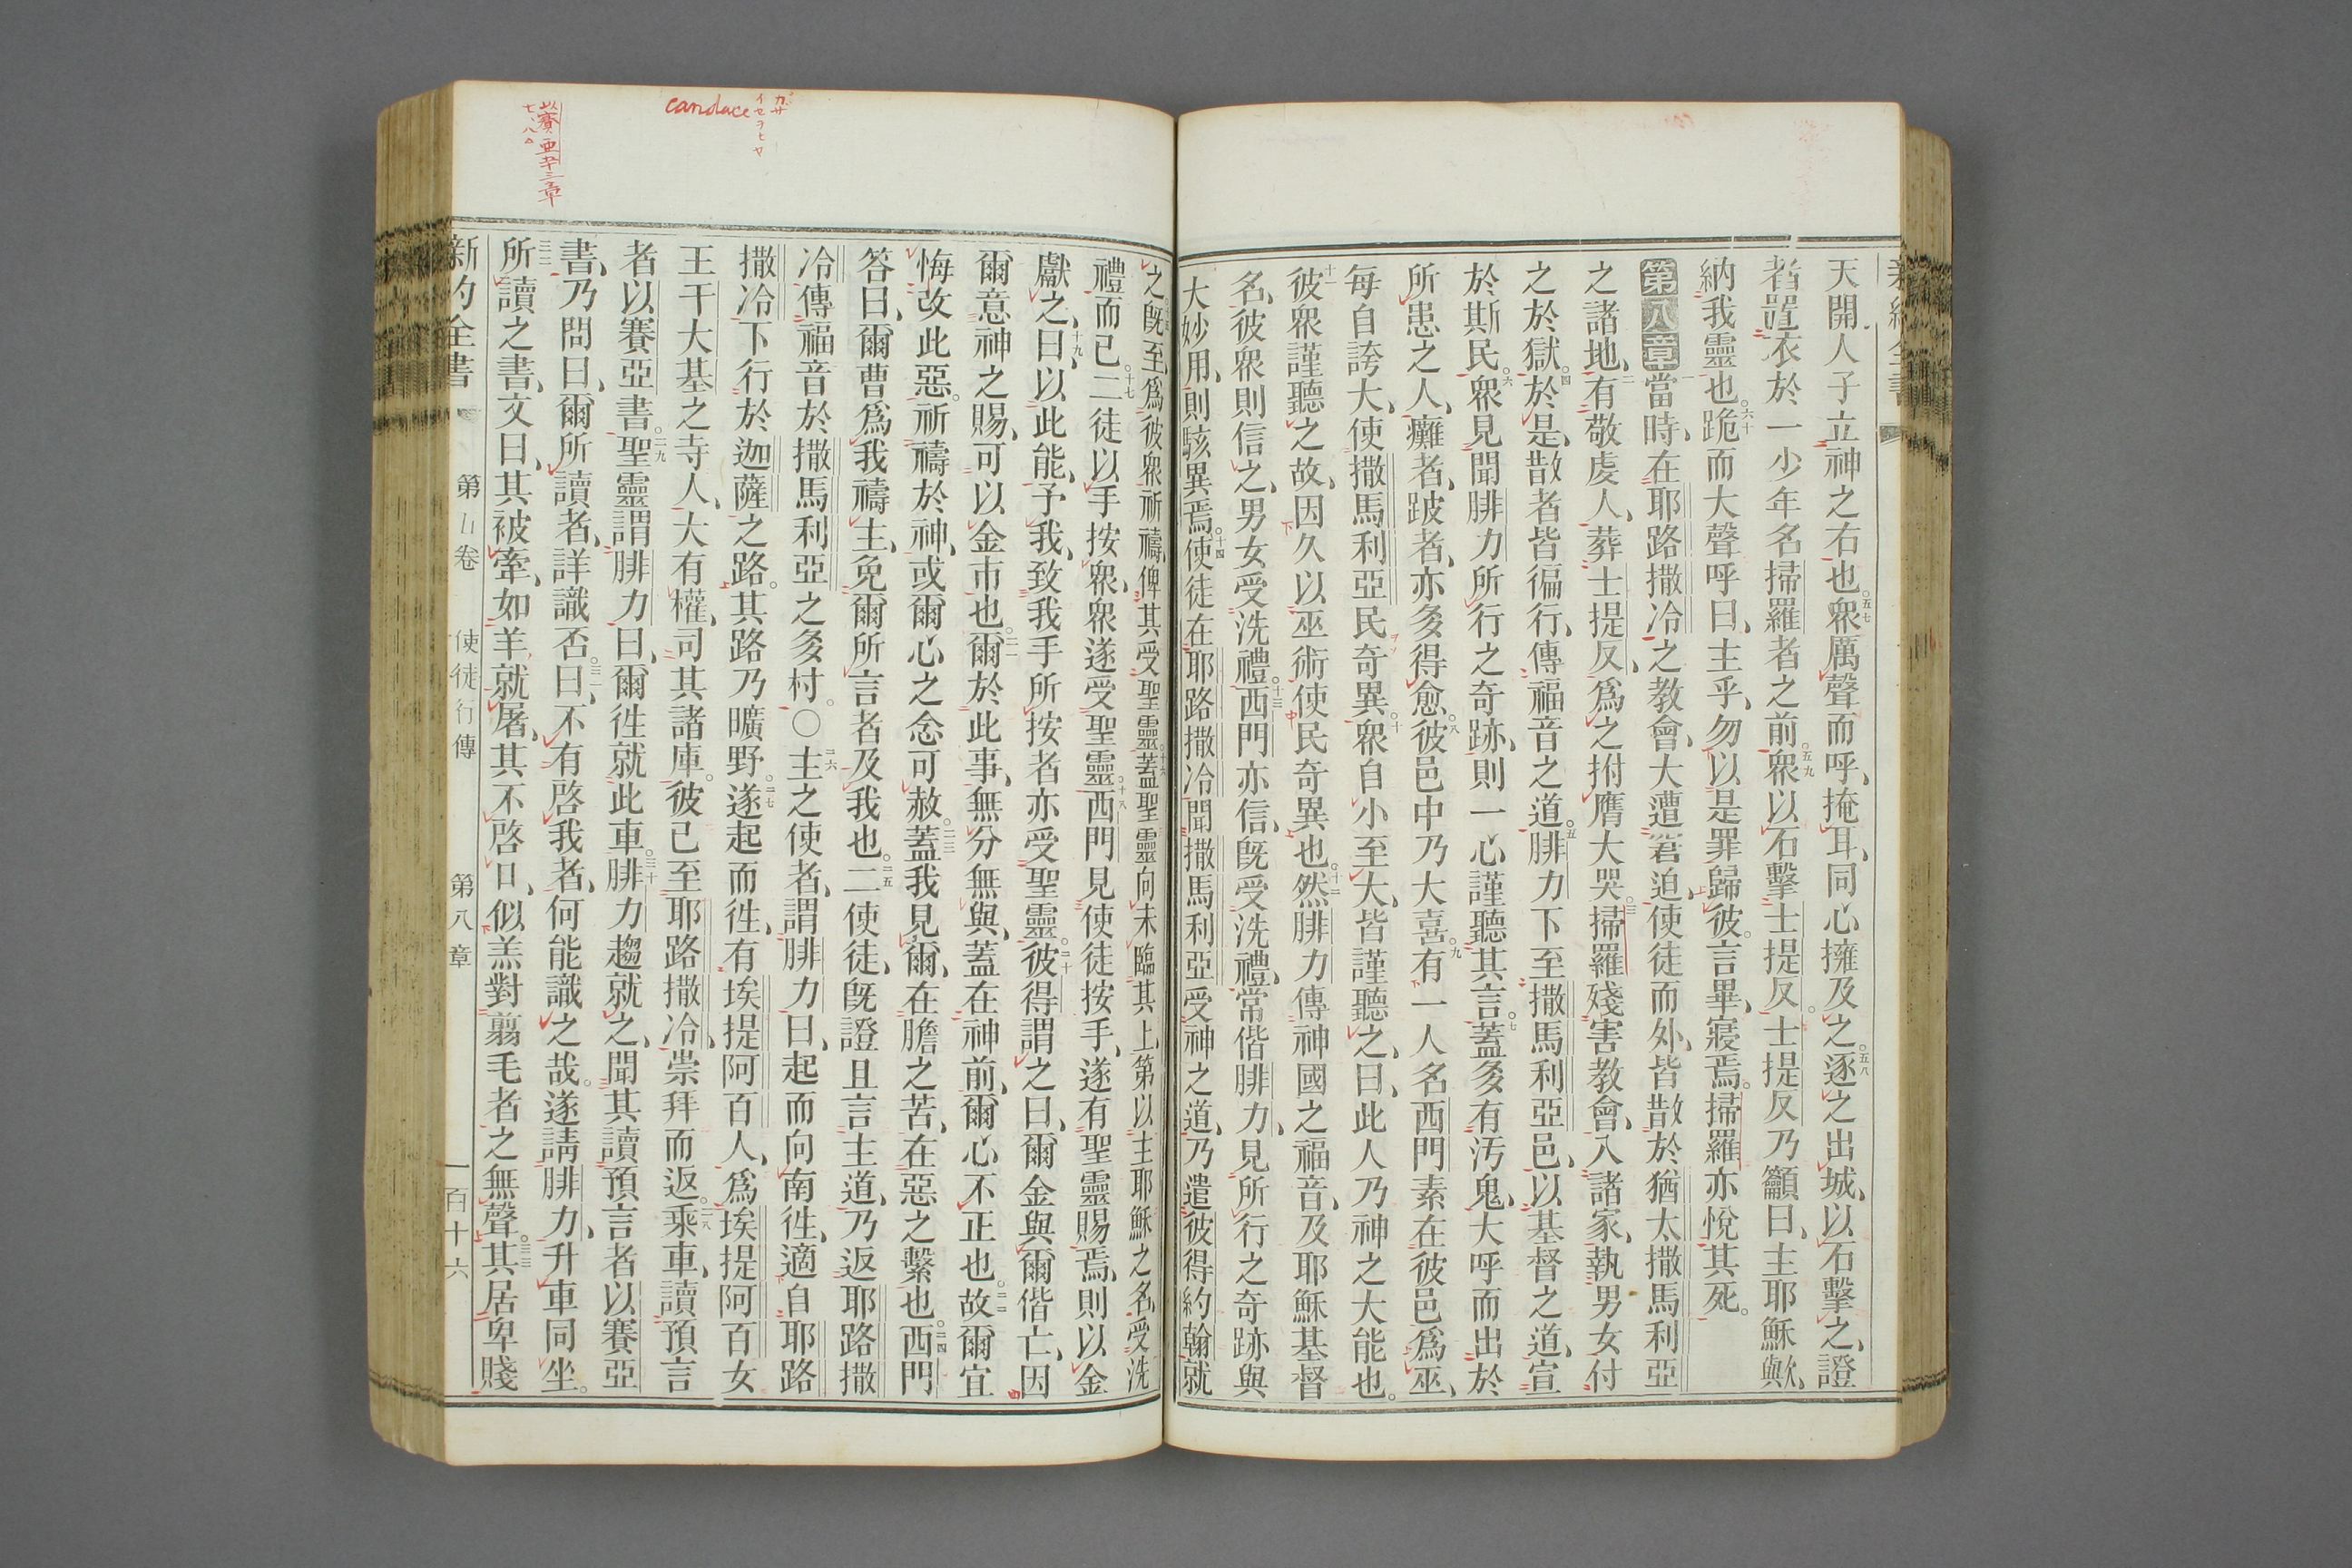 天開人子立神之右也五七衆厲聲而呼掩耳同心擁及之五八逐之出城以石擊之證
者置衣於一少年名掃羅者之前五九衆以石擊士提反士提反乃籲曰主耶穌歟
納我靈也六十跪而大聲呼曰主乎勿以是罪歸彼言畢寢焉掃羅亦悅其死
第八章一當時在耶路撒冷之教會大遭窘迫使徒而外皆散於猶太撒馬利亞
之諸地二有敬虔人葬士提反爲之拊膺大哭三掃羅殘害教會入諸家執男女付
之於獄四於是散者皆徧行傳福音之道五腓力下至撒馬利亞邑以基督之道宣
於斯民六衆見聞腓力所行之奇跡則一心謹聽其言七蓋多有汚鬼大呼而出於
所患之人癱者跛者亦多得愈八彼邑中乃大喜九有一人名西門素在彼邑爲巫
每自誇大使撒馬利亞民奇異十衆自小至大皆謹聽之曰此人乃神之大能也
十一彼衆謹聽之故因久以巫術使民奇異也十二然腓力傳神國之福音及耶穌基督
名彼衆則信之男女受洗禮十三西門亦信旣受洗禮常偕腓力見所行之奇跡與
大妙用則駭異焉十四使徒在耶路撒冷聞撒馬利亞受神之道乃遣彼得約翰就
之十五旣至爲彼衆祈禱俾其受聖靈十六蓋聖靈向未臨其上第以主耶穌之名受洗
禮而已十七二徒以手按衆衆遂受聖靈十八西門見使徒按手遂有聖靈賜焉則以金
獻之十九曰以此能予我致我手所按者亦受聖靈二十彼得謂之曰爾金與爾偕亡因
爾意神之賜可以金市也二一爾於此事無分無與蓋在神前爾心不正也二二故爾宜
悔改此惡祈禱於神或爾心之念可赦二三蓋我見爾在膽之苦在惡之繫也二四西門
答曰爾曹爲我禱主免爾所言者及我也二五二使徒旣證且言主道乃返耶路撒
冷傳福音於撒馬利亞之多村〇二六主之使者謂腓力曰起而向南徃適自耶路
撒冷下行於迦薩之路其路乃曠野二七遂起而徃有埃提阿百人爲埃提阿百女
王干大基之寺人大有權司其諸庫彼已至耶路撒冷崇拜而返二八乘車讀預言
者以賽亞書二九聖靈謂腓力曰爾徃就此車三十腓力趨就之聞其讀預言者以賽亞
書乃問曰爾所讀者詳識否三一曰不有啓我者何能識之哉遂請腓力升車同坐
三二所讀之書文曰其被牽如羊就屠其不啓口似羔對翦毛者之無聲三三其居卑賤
新約全書 第五卷 使徒行傳 第八章 一百十六
candace
以賽亞五十三章
七、八